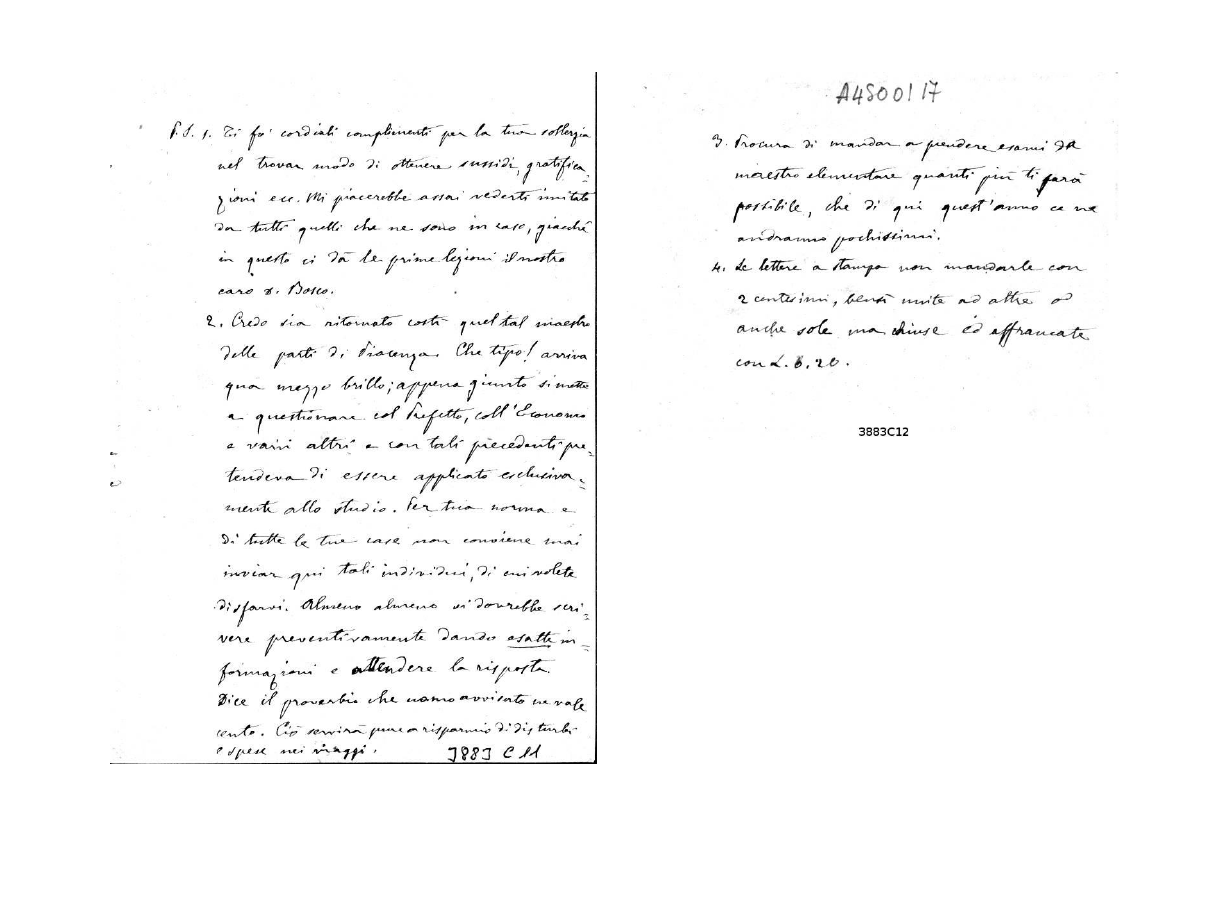 P.S. 1. Ti fo' cordiali complimenti per la tua sollerzia
nel trovar modo di ottenere sussidi, gratifica-
zioni ecc. Mi piacerebbe assai vederti imitato
da tutti quelli che ne sono in caso, giacchè
in questo ci dà le prime lezioni il nostro
caro D. Bosco.
2. Credo sia ritornato costì quel tal maestro
delle parti di Piacenza. Che tipo! arriva
qua mezzo brillo; appena giunto si mette
a questionare col Prefetto, coll'Economo
e varii altri e con tali precedenti pre-
tendeva di essere applicato esclusiva-
mente allo studio. Per tua norma e
di tutte le tue case non conviene mai
inviar qui tali individui, di cui volete
disfarvi. Almeno almeno si dovrebbe scri-
vere preventivamente dando esatte in-
formazioni e attendere la risposta.
Dice il proverbio che uomo avvisato ne vale
cento. Ciò servirà pure a risparmio di disturbi
e spese nei viaggi.
3883 C 11
A4500117
3. Procura di mandar a prendere esami da
maestro elementare quanti più ti sarà
possibile, che di qui quest'anno ce ne
andranno pochissimi.
4. Le lettere a stampa non mandarle con
2 centesimi, bensì unite ad altre od
anche sole ma chiuse ed affrancate
con L. 0,20.
3883C12